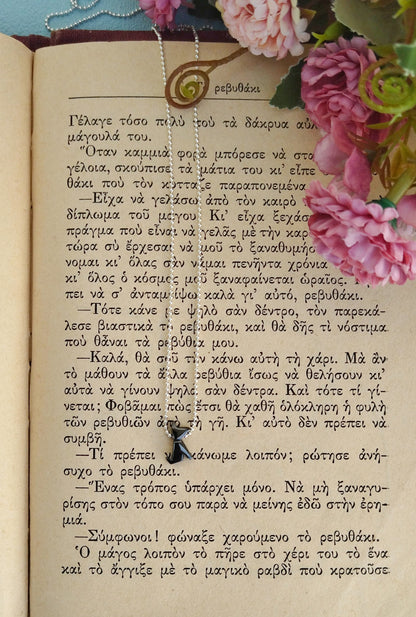 ρεβυθάκι
Γέλαγε τόσο πολὺ ποὺ τὰ δάκρυα
μάγουλά του.
Ὅταν καμμιὰ φορὰ μπόρεσε νὰ
γέλοια, σκούπισε τὰ μάτια του κι’ εἶπε
θάκι ποὺ τὸν κύτταζε παραπονεμένα
—Εἶχα νὰ γελάσω ἀπὸ τὸν καιρὸ
δίπλωμα τοῦ μάγου. Κι’ εἶχα
πρᾶγμα ποὺ εἶναι νὰ γελᾶς μὲ τὴν
τώρα σὺ ἔρχεσαι νὰ μοῦ τὸ
νομαι κι’ ὅλας σὰν νἆμαι πενῆντα χρόνια
κι’ ὅλος ὁ κόσμος μοῦ ξαναφαίνεται ὡραῖος.
πει νὰ σ’ ἀνταμείψω καλὰ γι’ αὐτό, ρεβυθάκι.
—Τότε κάνε με ψηλὸ σὰν δέντρο, τὸν παρεκά-
λεσε βιαστικὰ τὸ ρεβυθάκι, καὶ θὰ δῆς τὶ νόστιμα
ποὺ θἆναι τὰ ρεβύθια μου.
—Καλά, θὰ σοῦ τὴν κάνω αὐτὴ τὴ χάρι. Μὰ ἂν
τὸ μάθουν τὰ ἄλλα ρεβύθια ἴσως νὰ θελήσουν κι’
αὐτὰ νὰ γίνουν ψηλὰ σὰν δέντρα. Καὶ τότε τί γί-
νεται; Φοβᾶμαι πὼς ἔτσι θὰ χαθῆ ὁλόκληρη ἡ φυλὴ
τῶν ρεβυθιῶν ἀπὸ τὴ γῆ. Κι’ αὐτὸ δὲν πρέπει νὰ
συμβῆ.
—Τί πρέπει νὰ κάνωμε λοιπόν; ρώτησε ἀνή-
συχο τὸ ρεβυθάκι.
—Ἕνας τρόπος ὑπάρχει μόνο. Νὰ μὴ ξαναγυ-
ρίσης στὸν τόπο σου παρὰ νὰ μείνης ἐδῶ στὴν ἐρη-
μιά.
—Σύμφωνοι! φώναξε χαρούμενο τὸ ρεβυθάκι.
Ὁ μάγος λοιπὸν τὸ πῆρε στὸ χέρι του τὸ ἕνα
καὶ τὸ ἄγγιξε μὲ τὸ μαγικὸ ραβδὶ ποὺ κρατοῦσε